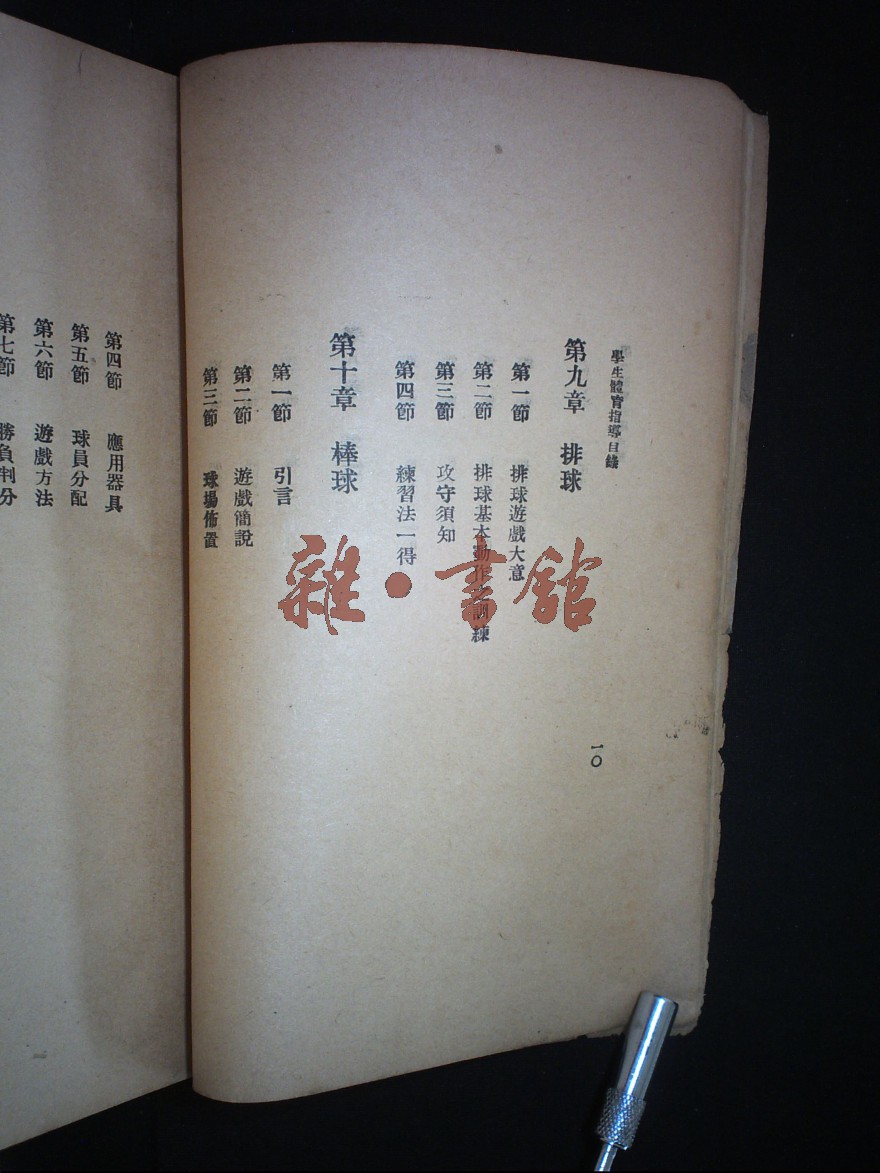 學生體育指導目錄
第九章 排球
第一節 排球遊戲大意
第二節 排球基本動作之訓練
第三節 攻守須知
第四節 練習法一得
第十章 棒球
第一節 引言
第二節 遊戲簡說
第三節 球場佈置
一〇
第四節 應用器具
第五節 球員分配
第六節 遊戲方法
第七節 勝負判分
雜·書館